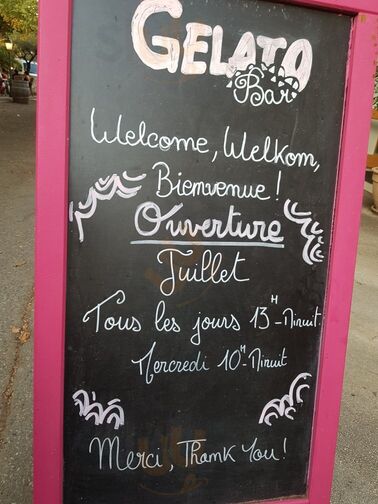 GELATO
Bar
Welcome, Welkom,
Bienvenue!
Ouverture
Juillet
Tous les jours 13H-Minuit
Mercredi 10H-Minuit
Merci, Thank You!